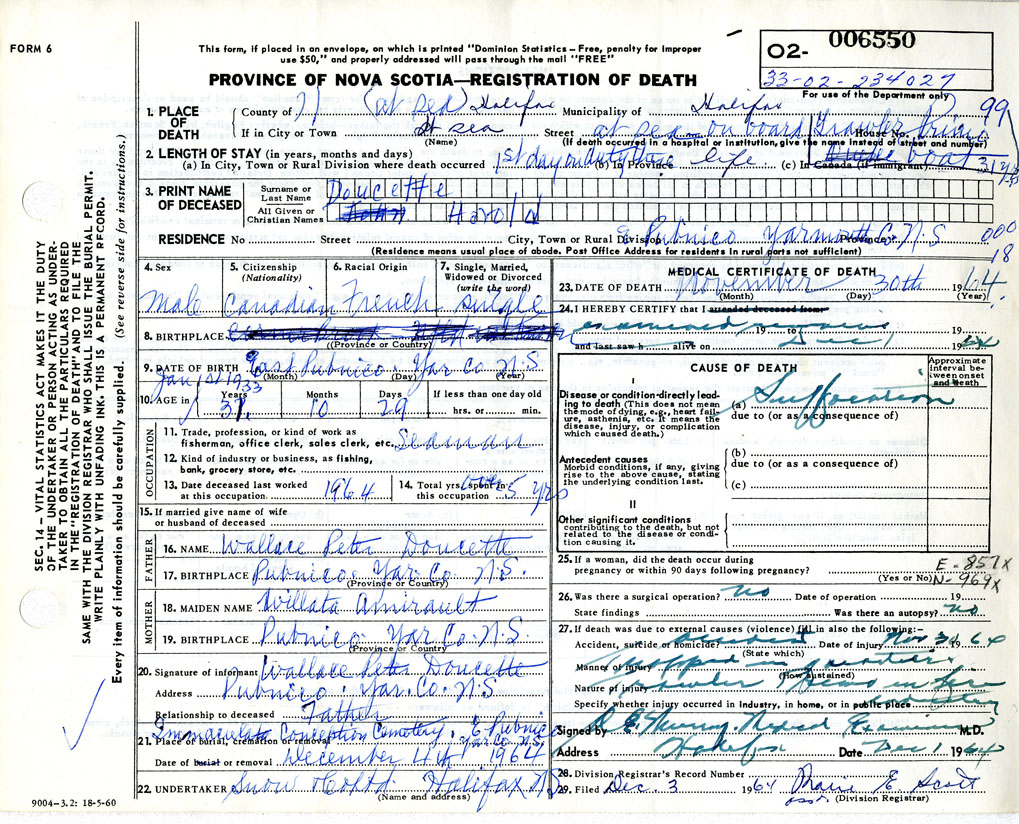 FORM 6
This form, if placed in an envelope, on which is printed "Dominion Statistics—Free, penalty for improper
use $50," and properly addressed will pass through the mail "FREE"
PROVINCE OF NOVA SCOTIA—REGISTRATION OF DEATH
O2- 006550
33-02-234027
For use of the Department only
1. PLACE OF DEATH
County of (at sea) Halifax Municipality of Halifax 99
If in City or Town At sea Street at sea on board Trawler House No.
(Name) (If death occurred in a hospital or institution, give the name instead of street and number)
2. LENGTH OF STAY (in years, months and days)
(a) In City, Town or Rural Division where death occurred 1st day on duty In Province life (c) In Canada (if immigrant) boat 31
3. PRINT NAME OF DECEASED
Surname or Last Name Doucette
All Given or Christian Names John Harold
RESIDENCE No Street City, Town or Rural Division E Pubnico Yarmouth Co. N.S. Province 000
(Residence means usual place of abode. Post Office Address for residents in rural parts not sufficient) 18
4. Sex 5. Citizenship (Nationality) 6. Racial Origin 7. Single, Married, Widowed or Divorced (write the word)
Male Canadian French single
8. BIRTHPLACE
(Province or Country)
9. DATE OF BIRTH East Pubnico Yar Co N.S.
(Month) (Day) (Year)
Jan 1st 1933
10. AGE in Years Months Days If less than one day old
31 10 29 hrs. or min.
OCCUPATION
11. Trade, profession, or kind of work as
fisherman, office clerk, sales clerk, etc. Seaman
12. Kind of industry or business, as fishing,
bank, grocery store, etc.
13. Date deceased last worked at this occupation. 1964
14. Total yrs. spent in this occupation 5 yrs
15. If married give name of wife
or husband of deceased
FATHER
16. NAME Wallace Peter Doucette
17. BIRTHPLACE Pubnico. Yar Co N.S.
(Province or Country)
MOTHER
18. MAIDEN NAME Willata Amirault
19. BIRTHPLACE Pubnico Yar Co. N.S.
(Province or Country)
20. Signature of informant Wallace Peter Doucette
Address Pubnico. Yar. Co. N.S
Relationship to deceased Father
Immaculate Conception Cemetery. E Pubnico
Yar. Co. N.S.
21. Place of burial, cremation or removal
Date of burial or removal December 4th 1964
22. UNDERTAKER Snow Halifax N.S.
(Name and address)
9004-3.2: 18-5-60
MEDICAL CERTIFICATE OF DEATH
23. DATE OF DEATH November 30th 1964
(Month) (Day) (Year)
24. I HEREBY CERTIFY that I attended deceased from:
examined remains 19 to Dec 1 19
and last saw h alive on 19 64
CAUSE OF DEATH
Approximate interval between onset and death
I
Disease or condition directly leading to death (This does not mean the mode of dying, e.g., heart failure, asthenia, etc. It means the disease, injury, or complication which caused death.)
(a) Suffocation
due to (or as a consequence of)
Antecedent causes
Morbid conditions, if any, giving rise to the above cause, stating the underlying condition last.
(b)
due to (or as a consequence of)
(c)
II
Other significant conditions
contributing to the death, but not related to the disease or condition causing it.
25. If a woman, did the death occur during
pregnancy or within 90 days following pregnancy? (Yes or No)
E-857x
N-969x
26. Was there a surgical operation? no Date of operation 19
State findings Was there an autopsy? no
27. If death was due to external causes (violence) fill in also the following:—
Accident, suicide or homicide? accident Date of injury Nov 30 64
(State which)
Manner of injury Trapped in quarters
(How sustained)
Nature of injury Trawler
Specify whether injury occurred in industry, in home, or in public place industry
Signed by D E Murray Medical Examiner M.D.
Address Halifax Date Dec 1 1964
28. Division Registrar's Record Number
29. Filed Dec. 3 1964 Marie E Scott
(Division Registrar)
SEC. 14—VITAL STATISTICS ACT MAKES IT THE DUTY
OF THE UNDERTAKER OR PERSON ACTING AS UNDER-
TAKER TO OBTAIN ALL THE PARTICULARS REQUIRED
IN THE "REGISTRATION OF DEATH" AND TO FILE THE
SAME WITH THE DIVISION REGISTRAR WHO SHALL ISSUE THE BURIAL PERMIT.
WRITE PLAINLY WITH UNFADING INK. THIS IS A PERMANENT RECORD.
Every item of information should be carefully supplied. (See reverse side for instructions.)